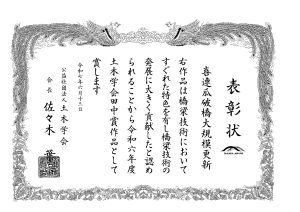 表彰状
喜連瓜破橋大規模更新
右作品は橋梁技術において
すぐれた特色を有し橋梁技術の
発展に大きく貢献したと認め
られることから令和六年度
土木学会田中賞作品として
賞します
令和七年六月十三日
公益社団法人土木学会
会長 佐々木 葉